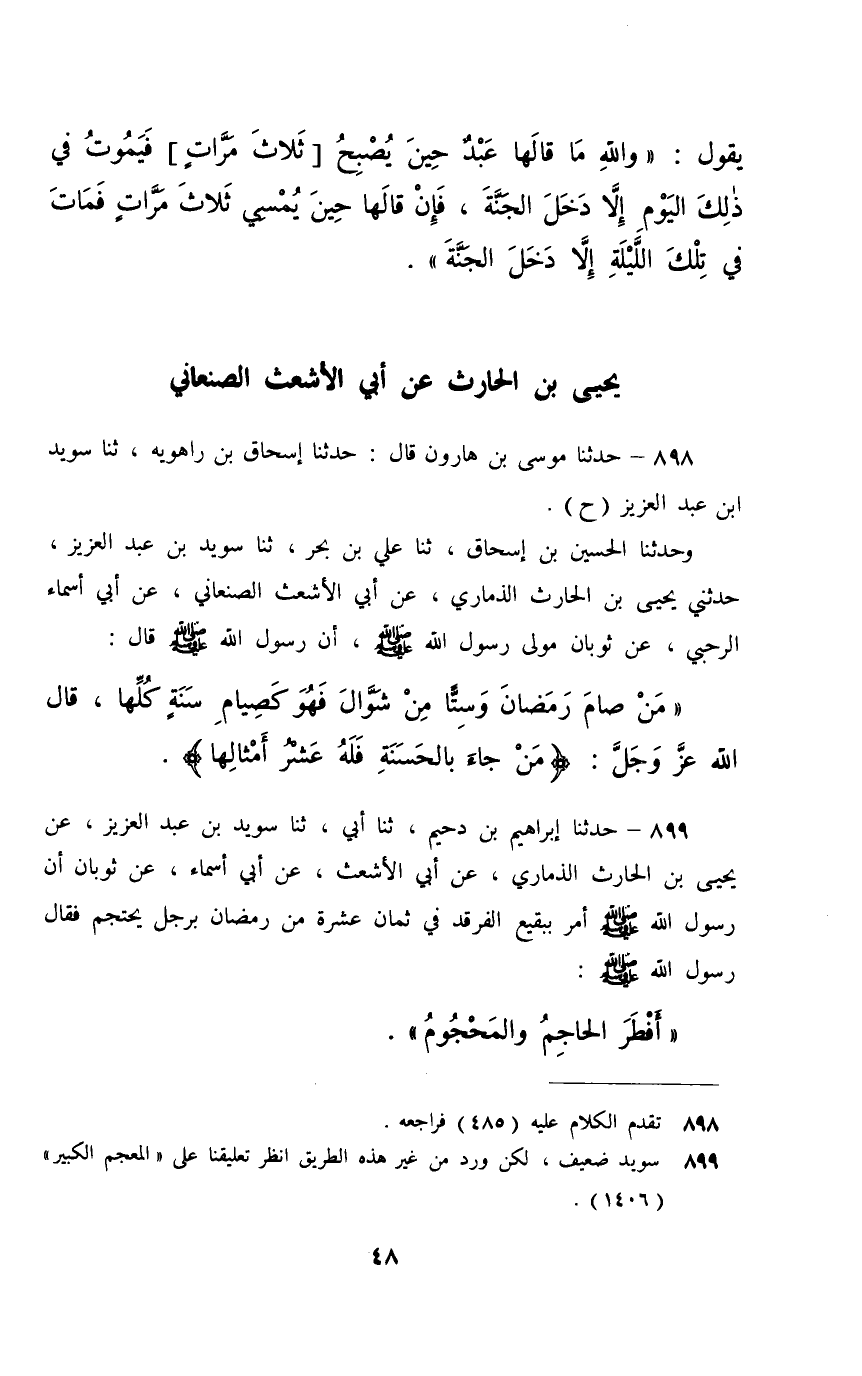 يقول : « واللهِ مَا قالَها عَبْدٌ حِينَ يُصْبِحُ [ ثَلاثَ مَرَّاتٍ ] فَيَمُوتُ في
ذٰلِكَ اليَوْمِ إِلَّا دَخَلَ الجَنَّةَ ، فَإِنْ قالَها حِينَ يُمْسِي ثَلاثَ مَرَّاتٍ فَمَاتَ
في تِلْكَ اللَّيْلَةِ إِلَّا دَخَلَ الجَنَّةَ » .
يحيـى بن الحارث عن أبي الأشعث الصنعاني
٨٩٨ – حدثنا موسى بن هارون قال : حدثنا إسحاق بن راهويه ، ثنا سويد
ابن عبد العزيز ( ح ) .
وحدثنا الحسين بن إسحاق ، ثنا علي بن بحر ، ثنا سويد بن عبد العزيز ،
حدثني يحيـى بن الحارث الذماري ، عن أبي الأشعث الصنعاني ، عن أبي أسماء
الرحبي ، عن ثوبان مولى رسول الله ﷺ ، أن رسول الله ﷺ قال :
« مَنْ صامَ رَمَضانَ وَسِتًّا مِنْ شَوَّالَ فَهُوَ كَصِيامِ سَنَةٍ كُلِّها ، قال
الله عزَّ وَجَلَّ : ﴿ مَنْ جاءَ بالحَسَنَةِ فَلَهُ عَشْرُ أَمْثالِها ﴾ .
٨٩٩ – حدثنا إبراهيم بن دحيم ، ثنا أبي ، ثنا سويد بن عبد العزيز ، عن
يحيـى بن الحارث الذماري ، عن أبي الأشعث ، عن أبي أسماء ، عن ثوبان أن
رسول الله ﷺ أمر ببقيع الفرقد في ثمان عشرة من رمضان برجل يحتجم فقال
رسول الله ﷺ :
« أَفْطَرَ الحاجِمُ والمَحْجُومُ » .
٨٩٨ تقدم الكلام عليه ( ٤٨٥ ) فراجعه .
٨٩٩ سويد ضعيف ، لكن ورد من غير هذه الطريق انظر تعليقنا على « المعجم الكبير »
( ١٤٠٦ ) .
٤٨